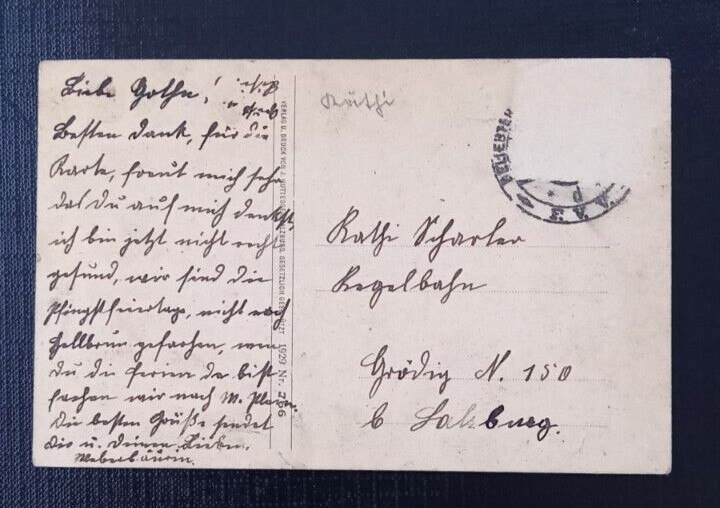 Liebe Gothe!
Besten Dank, für die
Karte, freut mich sehr
das du auf mich denkst,
ich bin jetzt nicht recht
gesund, wir sind die
Pfingstfeiertage, nicht nach
Hellbrun gefahren, wen
du die Ferien da bist
fahren wir nach M. Plain
Die besten Grüße sendet
Dir u. deinen Lieben,
VERLAG U. DRUCK VON J. HUTTEGGER, SALZBURG. GESETZLICH GESCHÜTZT 1929 Nr. 766
Käthi
Kathi Scharler
Kegelbahn
Grödig N. 150
b Salzburg.